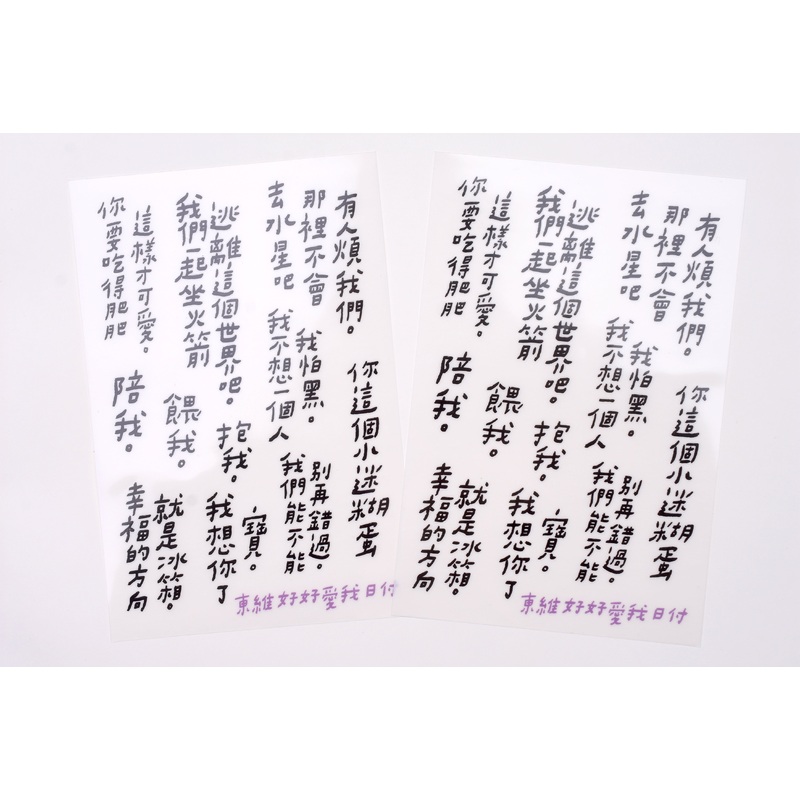 你要吃得肥肥
這樣才可愛。
我們一起坐火箭
逃離這個世界吧。
去水星吧
那裡不會
有人煩我們。
陪我。
餵我。
抱我。
我不想一個人
我怕黑。
你這個小迷糊蛋
幸福的方向
就是冰箱。
我想你了
寶。
我們能不能
別再錯過。
東維好好愛我日付
你要吃得肥肥
這樣才可愛。
我們一起坐火箭
逃離這個世界吧。
去水星吧
那裡不會
有人煩我們。
陪我。
餵我。
抱我。
我不想一個人
我怕黑。
你這個小迷糊蛋
幸福的方向
就是冰箱。
我想你了
寶。
我們能不能
別再錯過。
東維好好愛我日付